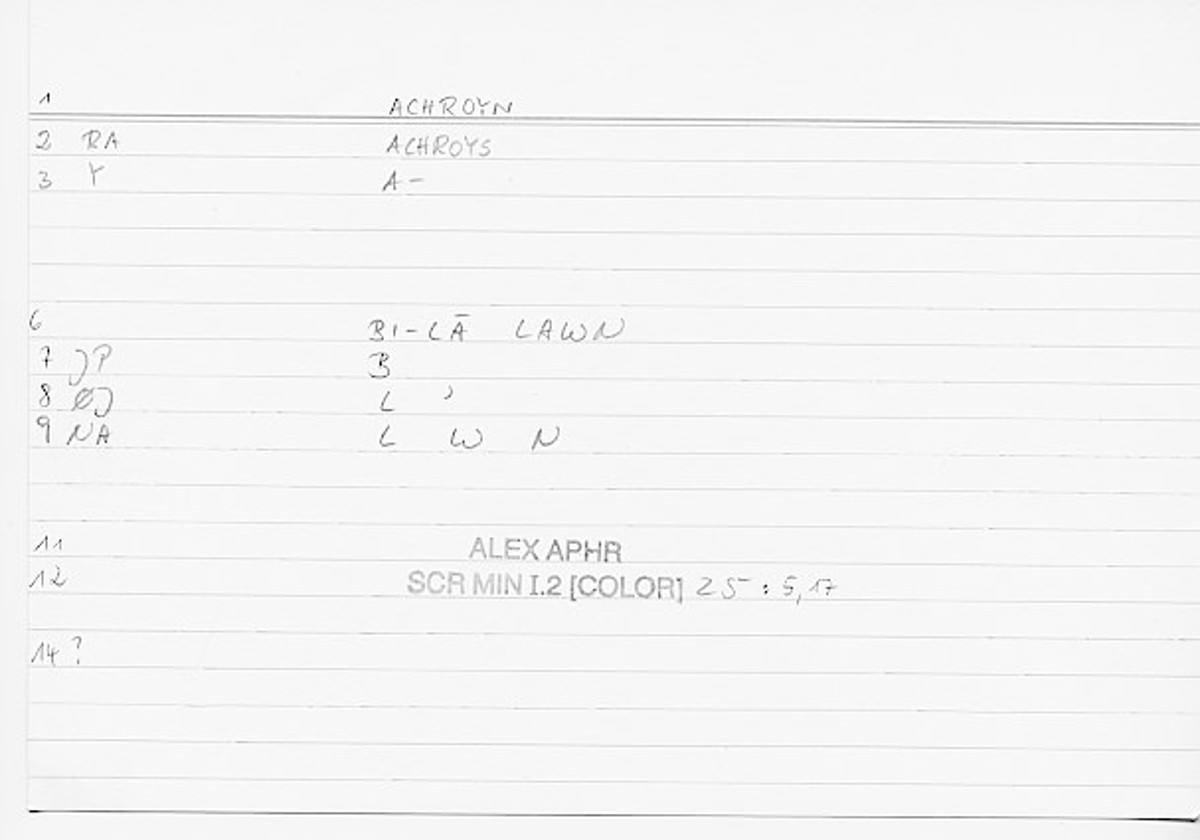 1 ACHROYN
2 RA ACHROYS
3 Y A-
6 BI-LĀ LAWN
7 JP B
8 ØJ L ʾ
9 NA L W N
11 ALEX APHR
12 SCR MIN I.2 [COLOR] 25 : 5,17
14 ?